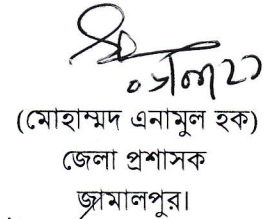 (মোহাম্মদ এনামুল হক)
জেলা প্রশাসক
জামালপুর।